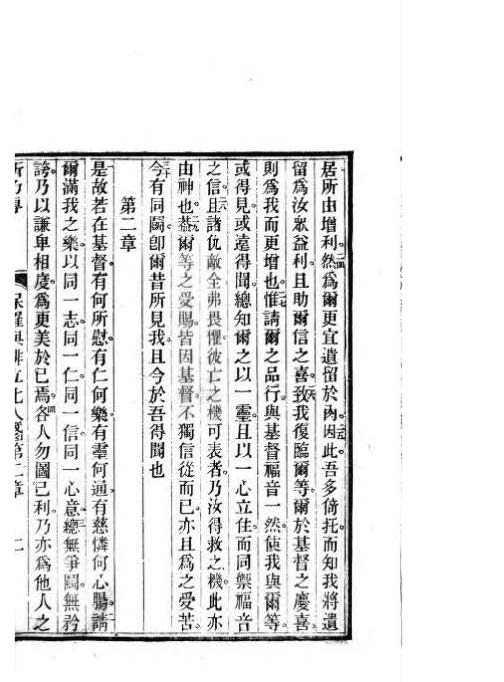 居所由增利。然爲爾更宜遺留於內。因此吾多倚托而知我將遺
留爲汝衆益利。且助爾信之喜。致我復臨爾等。爾於基督之慶喜
則爲我而更增也。惟請爾之品行與基督福音一然。使我與爾等
或得見或遠得聞。總知爾之以一靈。且以一心立住而同禦福音
之信。且諸仇敵全弗畏懼。彼亡之機可表者。乃汝得救之機。此亦
由神也。葢爾等之受賜。皆因基督。不獨信從而已。亦且爲之受苦。
今有同鬪。卽爾昔所見我。且今於吾得聞也
第二章
是故若在基督有何所慰。有仁何樂。有靈何通。有慈憐何心腸。請
爾滿我之樂。以同一志。同一仁。同一信。同一心意。總無爭鬪。無矜
誇。乃以謙卑相度。爲更美於已焉。各人勿圖已利。乃亦爲他人之
二